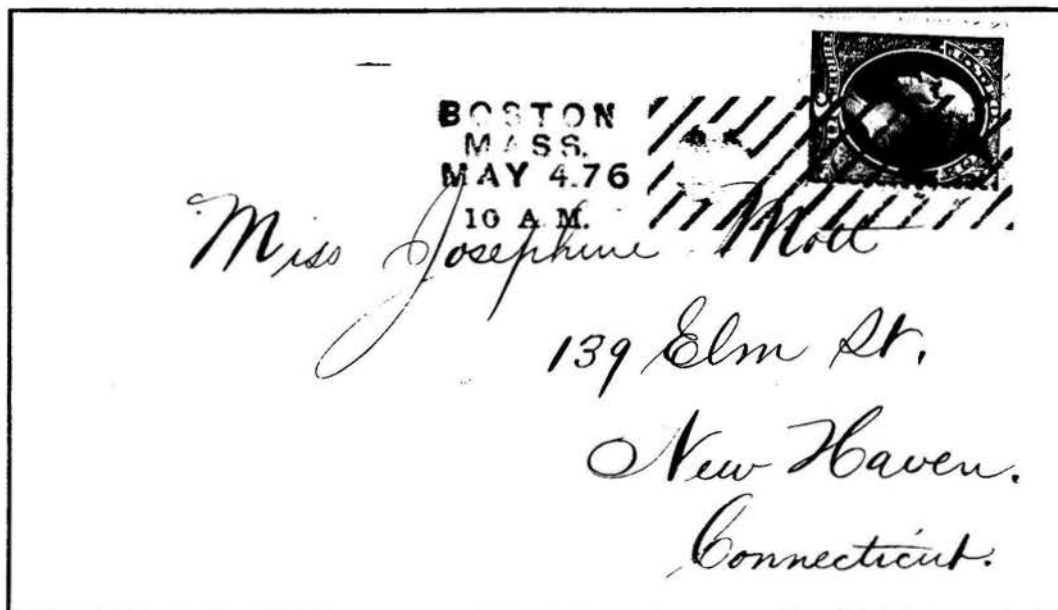 BOSTON
MASS.
MAY 4.76
10 A M.
Miss Josephine Mott
139 Elm St.
New Haven.
Connecticut.